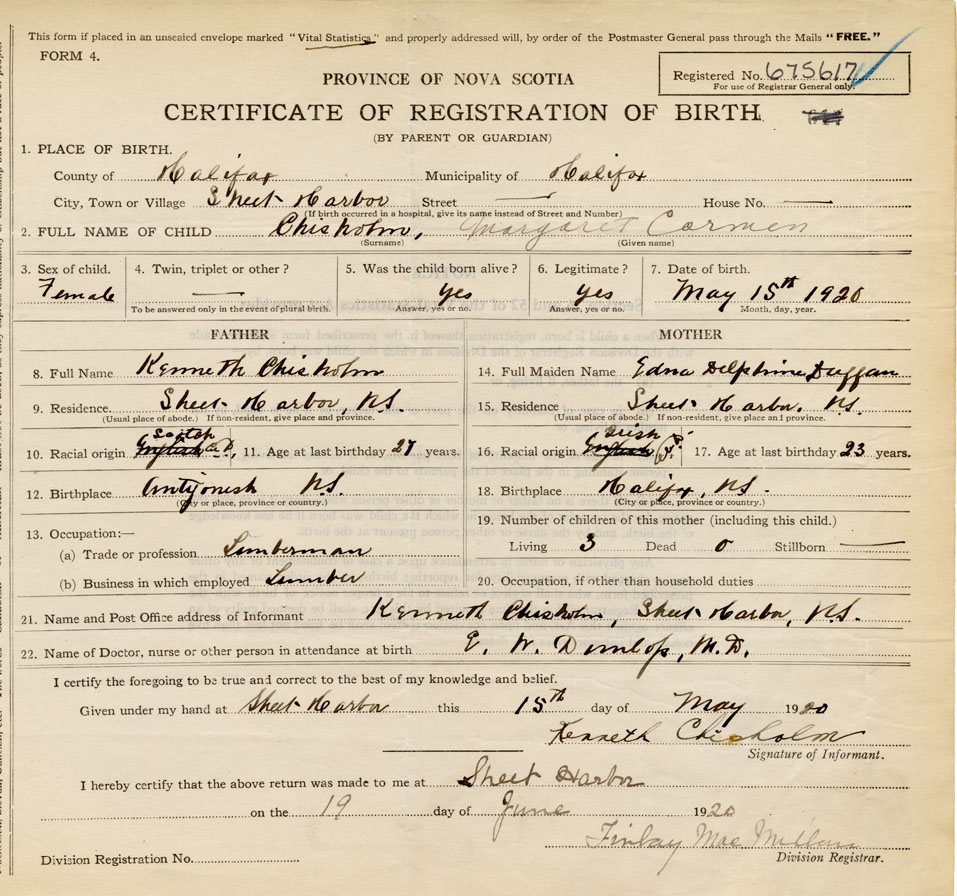 This form if placed in an unsealed envelope marked "Vital Statistics" and properly addressed will, by order of the Postmaster General pass through the Mails "FREE."
FORM 4.
Registered No. 675617
For use of Registrar General only.
PROVINCE OF NOVA SCOTIA
CERTIFICATE OF REGISTRATION OF BIRTH
(BY PARENT OR GUARDIAN)
1. PLACE OF BIRTH.
County of Halifax Municipality of Halifax
City, Town or Village Sheet Harbor Street — House No. —
(If birth occurred in a hospital, give its name instead of Street and Number)
2. FULL NAME OF CHILD Chisholm, Margaret Carmen
(Surname) (Given name)
3. Sex of child. 4. Twin, triplet or other? 5. Was the child born alive? 6. Legitimate? 7. Date of birth.
Female — yes yes May 15th 1920
To be answered only in the event of plural birth. Answer, yes or no. Answer, yes or no. Month, day, year.
FATHER MOTHER
8. Full Name Kenneth Chisholm 14. Full Maiden Name Edna Delphine Duggan
9. Residence. Sheet Harbor, N.S. 15. Residence Sheet Harbor. N.S.
(Usual place of abode.) If non-resident, give place and province. (Usual place of abode.) If non-resident, give place and province.
Scotch Irish
10. Racial origin English 11. Age at last birthday 27 years. 16. Racial origin English 17. Age at last birthday 23 years.
12. Birthplace Antigonish N.S. 18. Birthplace Halifax, N.S.
(City or place, province or country.) (City or place, province or country.)
13. Occupation:— 19. Number of children of this mother (including this child.)
(a) Trade or profession Lumberman Living 3 Dead 0 Stillborn —
(b) Business in which employed Lumber 20. Occupation, if other than household duties
21. Name and Post Office address of Informant Kenneth Chisholm, Sheet Harbor, N.S.
22. Name of Doctor, nurse or other person in attendance at birth E. W. Dunlop, M.D.
I certify the foregoing to be true and correct to the best of my knowledge and belief.
Given under my hand at Sheet Harbor this 15th day of May 1920
Kenneth Chisholm
Signature of Informant.
I hereby certify that the above return was made to me at Sheet Harbor
on the 19 day of June 1920
Finlay MacMillan
Division Registrar.
Division Registration No.